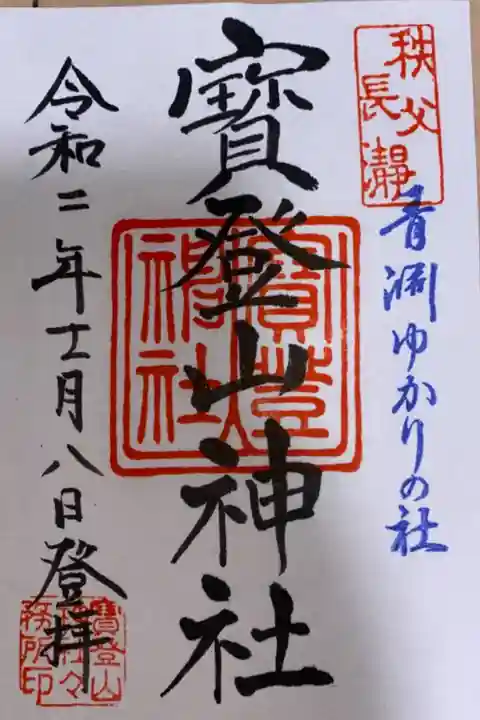 秩父
長瀞
青渕ゆかりの社
寶登山神社
寶登山
神社
令和二年十一月八日登拝
寶登山
神社々
務所印